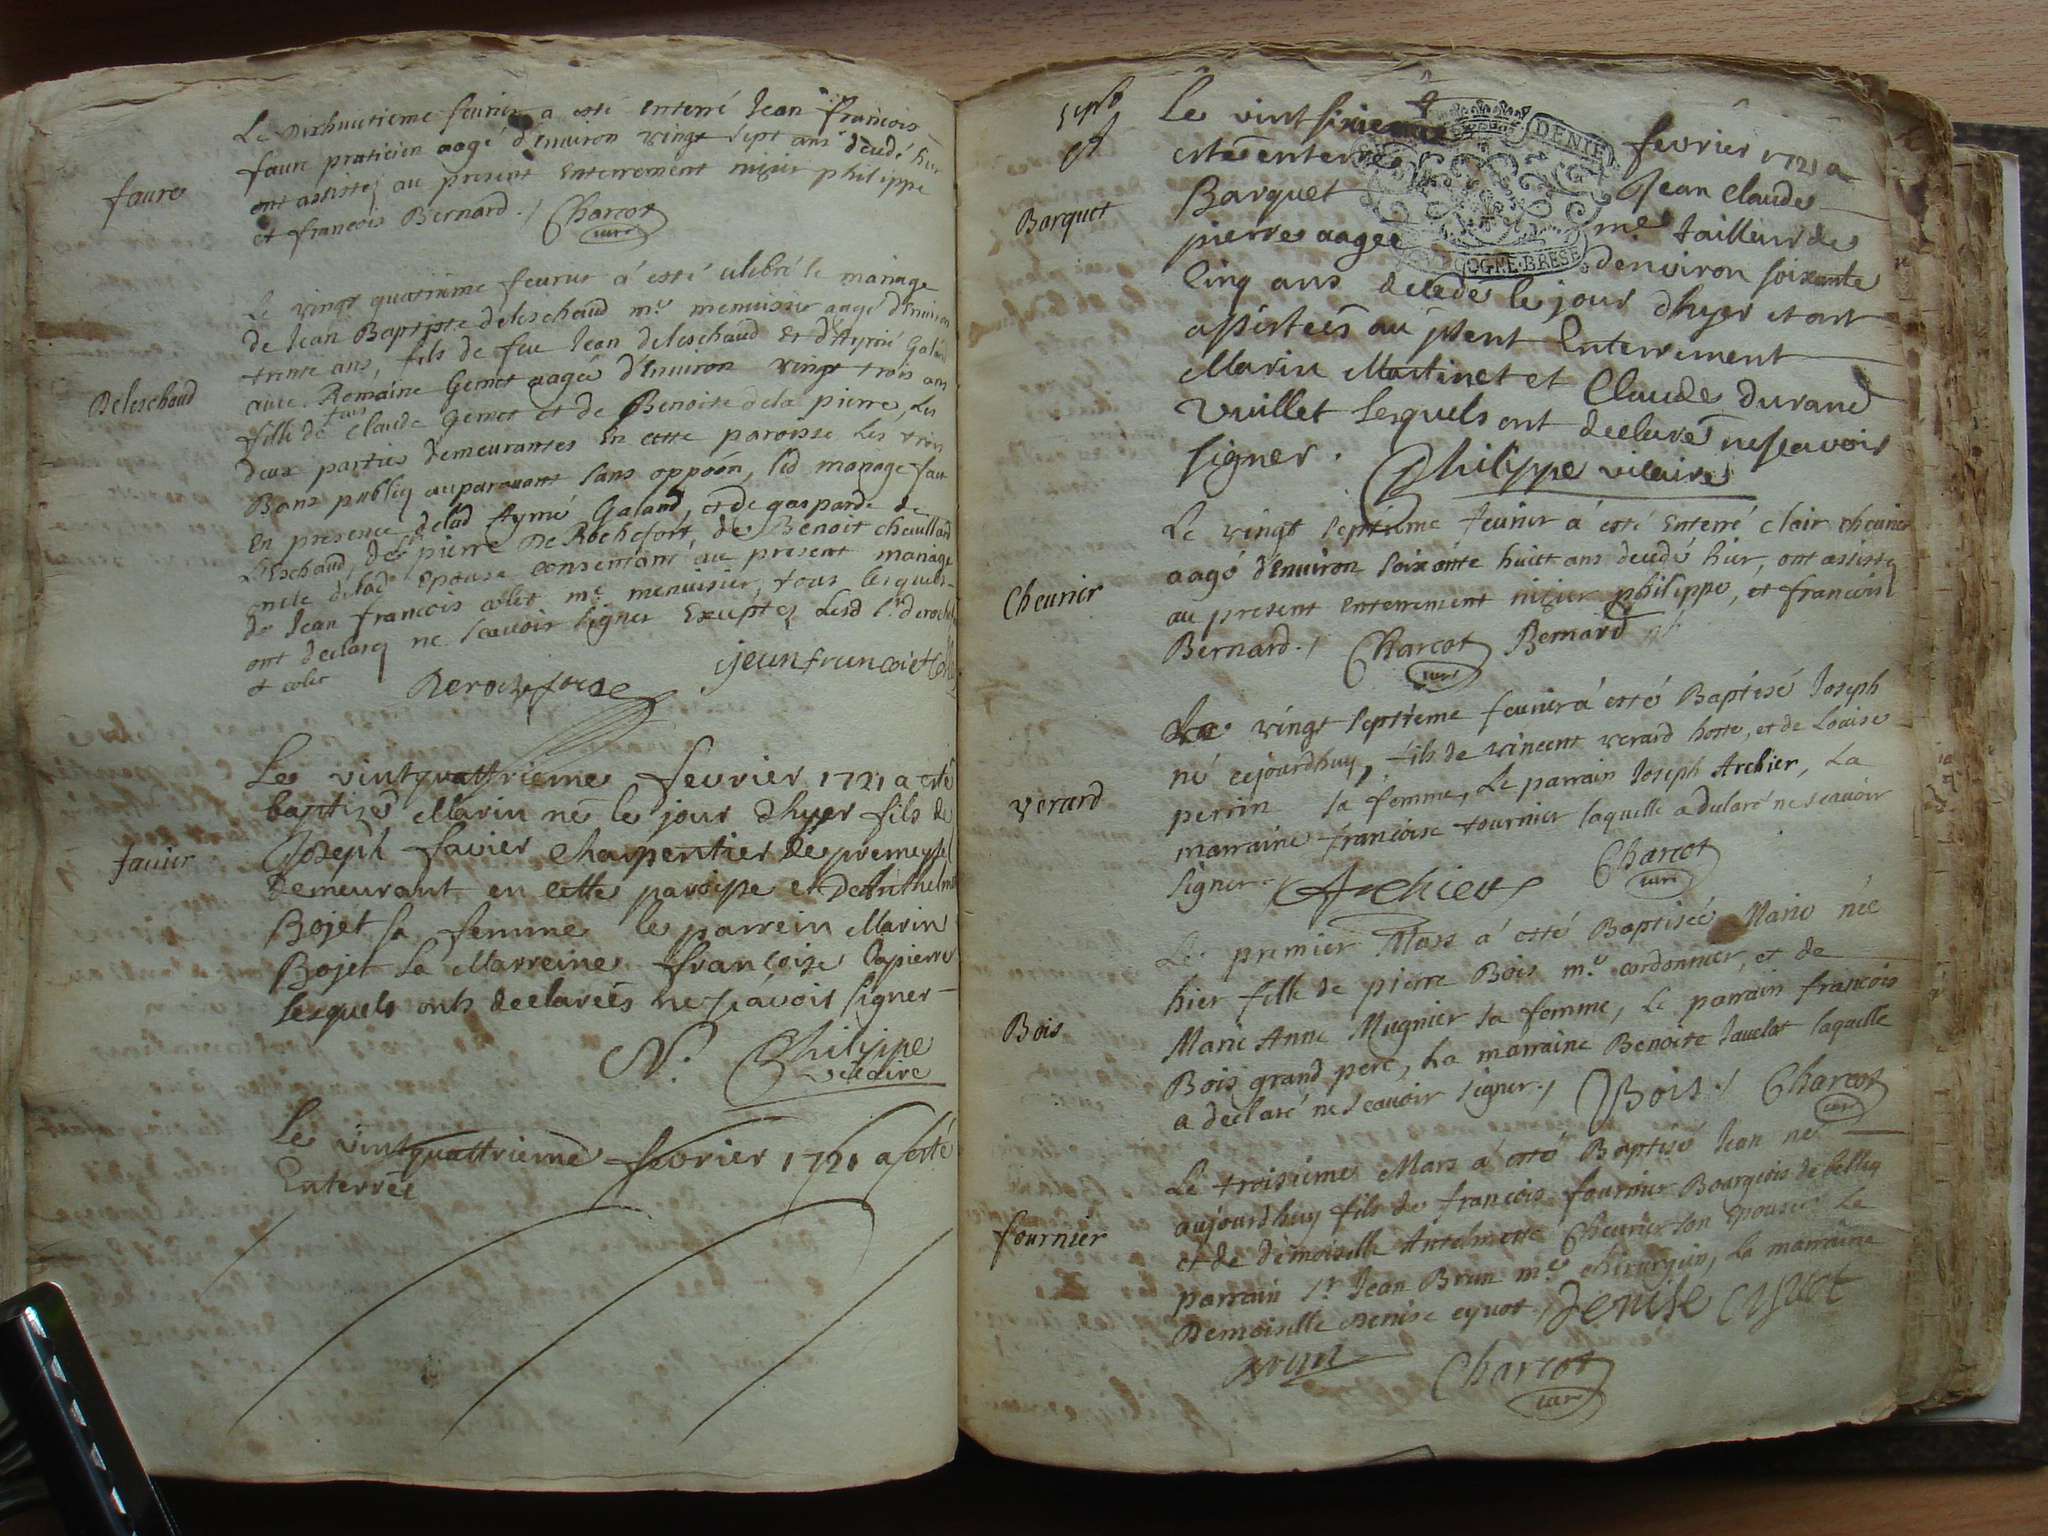 Le Dixhuictieme feurier a esté Enterré Jean francois
faure praticien aagé d'Environ vingt sept ans decedé hier
ont assistez au present Enterrement nizier philippe
et francois Bernard ./ Charcot
curé
faure
Le vingt quatrieme feurier á esté celebré le mariage
de Jean Baptiste deleschaud me menuisier aagé d'Environ
trente ans, fils de feu Jean deleschaud et d'Aymé Galand
auec Romaine Gemet aagée d'Environ vingt trois ans
fille de feus Claude Gemet et de Benoite dela pierre, Les
Deleschaud
deux parties demeurantes En cette paroisse Les trois
Bans publiez auparauant sans oppoõn, led mariage fait
En presence delad Aymé Galand, et de gasparde de
Leschaud, de sr pierre De Rochefort, de Benoit cheuillard
oncle delad Epouse consentant au present mariage
de Jean francois colet me menuisier, tous lesquels
ont declaré ne scauoir signer Exceptez Lesd sr derochefort
et colet
Derochefort jeanfrancoit Collet
Le vintquattrieme fevrier 1721 a esté
baptizé Marin né le jour d'hyer fils de
Joseph favier Charpentier de premeyzel
fauier
demeurant en cette paroisse et d'Anthelme
Bojet sa femme le parrein Marin
Bojet la Marreine françoise Lapierre
lesquels onts declareés ne sçavoir signer
N. Philippe
vicaire
Le vintquattrieme fevrier 1721 a esté
Enterrée
sept
Le vint sixieme fevrier 1721 a
esté enterré Jean Claude
Barquet me tailleur de
Barquet
pierre aagé d'environ soixante
cinq ans decedé le jour d'hyer et ont
assistées au p̃sent Enterrement
Marin Martinet et Claude durand
Vuillet lesquels ont declaré ne sçavoir
signer. Philippe vicaire
DENIE
OGNE.BRESE
Le vingt septieme feurier á esté Enterré clair cheurier
aagé d'Environ soixante huict ans decedé hier, ont assistez
Cheurier
au present Enterrement nizier philippe, et francois
Bernard ./ Charcot Bernard
curé
Le vingt septieme feurier á esté Baptisé Joseph
né cejourdhuy, fils de vincent verard hoste, et de Louise
verard
perrin sa femme, Le parrain Joseph Archier, La
marraine francoise tournier laquelle a declaré ne scauoir
signer. Archier Charcot
curé
Le premier Mars á esté Baptisée Marie née
hier fille de pierre Bois me cordonnier, et de
Bois
Marie Anne Mugnier sa femme, Le parrain francois
Bois grand pere, La marraine Benoite Jauelot laquelle
a declaré ne scauoir signer ./ Bois ./ Charcot
curé
Le troisieme Mars á esté Baptisé Jean né
aujourdhuy fils de francois fournier Bourgeois de belley
fournier
et de demoiselle Antelmette Cheurier son Epouse Le
parrain sr Jean Brun me chirurgien, La marraine
Demoiselle Denise cyuot / Denise cyuot
Brun Charcot
curé